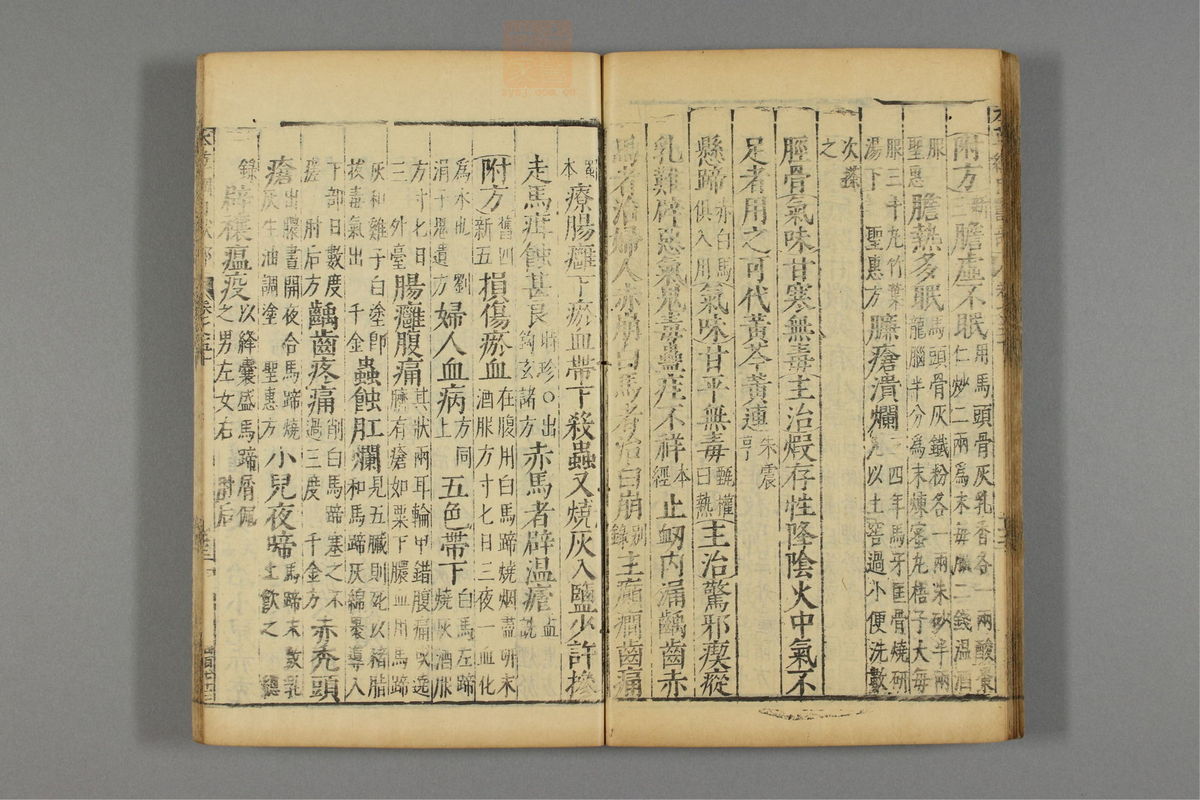 附方新三膽虛不眠用馬頭骨灰乳香各一兩酸棗
仁炒二兩為末每服二錢溫酒服
聖惠膽熱多眠馬頭骨灰鐵粉各一兩朱砂半兩
龍腦半分為末煉蜜丸梧子大每
服三十丸竹葉湯下聖惠方臁瘡潰爛三四年馬牙匡骨燒研
以土窖過小便洗數
次搽之
脛骨氣味甘寒無毒主治煆存性降陰火中氣不
足者用之可代黃芩黃連朱震亨
懸蹄赤白馬俱入用氣味甘平無毒甄權曰熱主治驚邪瘈瘲
乳難辟惡氣鬼毒蠱疰不祥本經止衄內漏齲齒赤
馬者治婦人赤崩白馬者治白崩別錄主癲癇齒痛
蜀本療腸癰下瘀血帶下殺蟲又燒灰入鹽少許摻
走馬疳蝕甚良時珍○出鉤玄諸方赤馬者辟溫瘧孟詵
附方舊四新五損傷瘀血在腹用白馬蹄燒烟盡研末
酒服方寸匕日三夜一血化
為水也劉涓子鬼遺方婦人血病方同上五色帶下白馬左蹄
燒灰酒服
方寸匕日三外臺腸癰腹痛其狀兩耳輪甲錯腹痛或遶
臍有瘡如粟下膿血用馬蹄
灰和雞子白塗即拔毒氣出千金蟲蝕肛爛見五臟則死以豬脂
和馬蹄灰綿裹導入
下部日數度瘥肘后方齲齒疼痛削白馬蹄塞之不
過三度千金方赤禿頭
瘡出膿晝開夜合馬蹄燒灰生油調塗聖惠方小兒夜啼馬蹄末敷乳
上飲之總
錄辟禳瘟疫以絳囊盛馬蹄屑佩
之男左女右肘后